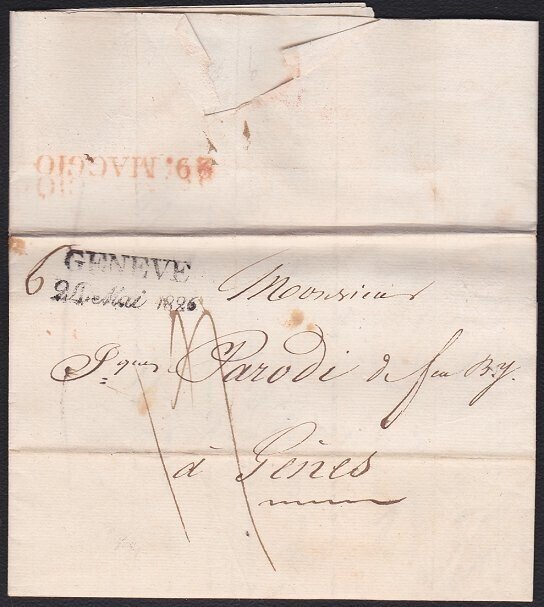 29. MAGGIO
6
GENEVE
Mai 1826
Monsieur
J.ques Parodi de feu B.y.
à Gênes